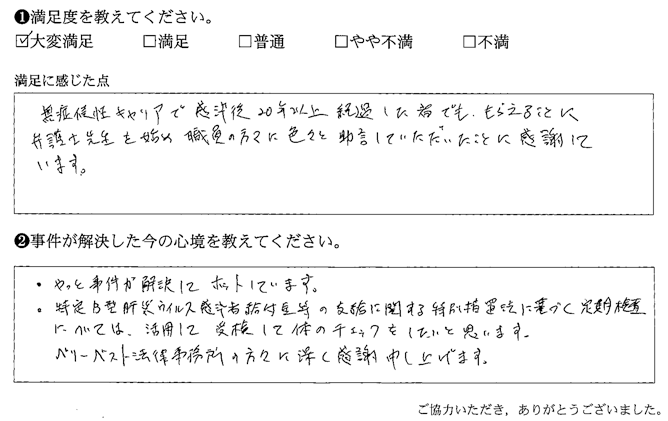 ❶満足度を教えてください。
☑大変満足 □満足 □普通 □やや不満 □不満
満足に感じた点
無症候性キャリアで感染後20年以上経過した者でも、もらえることに
弁護士先生を始め職員の方々に色々と助言していただいたことに感謝して
います。
❷事件が解決した今の心境を教えてください。
・やっと事件が解決してホットしています。
・特定B型肝炎ウイルス感染者給付金等の支給に関する特別措置法に基づく定期検査
については、活用して受検して体のチェックをしたいと思います。
ベリーベスト法律事務所の方々に深く感謝申し上げます。
ご協力いただき、ありがとうございました。